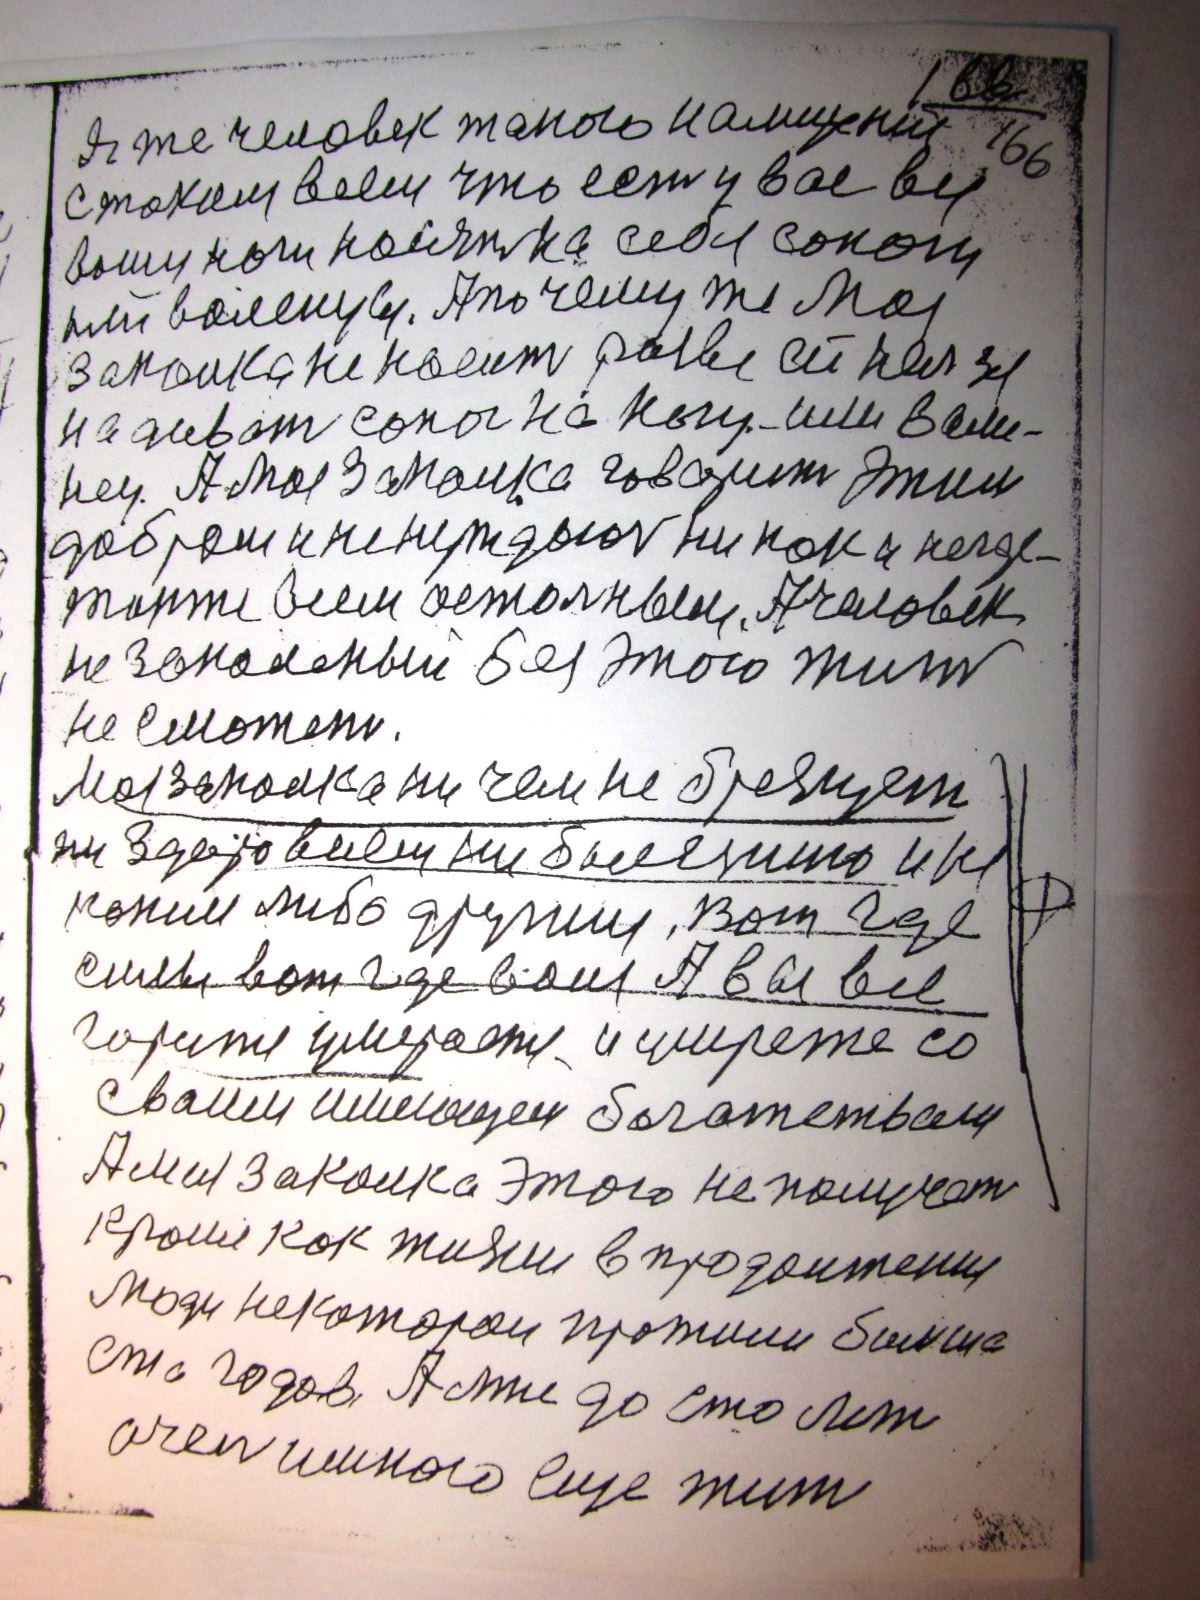 166
166
Я же человек такого
с таким всем что есть у вас вы
вашу ногу на себя сапоги
или валенки. А почему же моя
закалка не носит разве ей нелзя
надиват сапог на ногу или вали-
нец. А моя закалка говорит этим
добром и не нуждаюс ни как и негде
также всем осталным. А человек
не закаленый без этого жит
не сможет.
Моя закалка ни чем не брезгует
ни здаровием ни болезнию и ни
каким либо другим, вот где
силы вот где воля А вы все
горите умераете и умрете со
своим имеющем богатством
А моя закалка этого не получает
кроми как жизни в продолжении
Люди некоторои прожили болша
ста годов А мне до сто лет
очен много еще жит